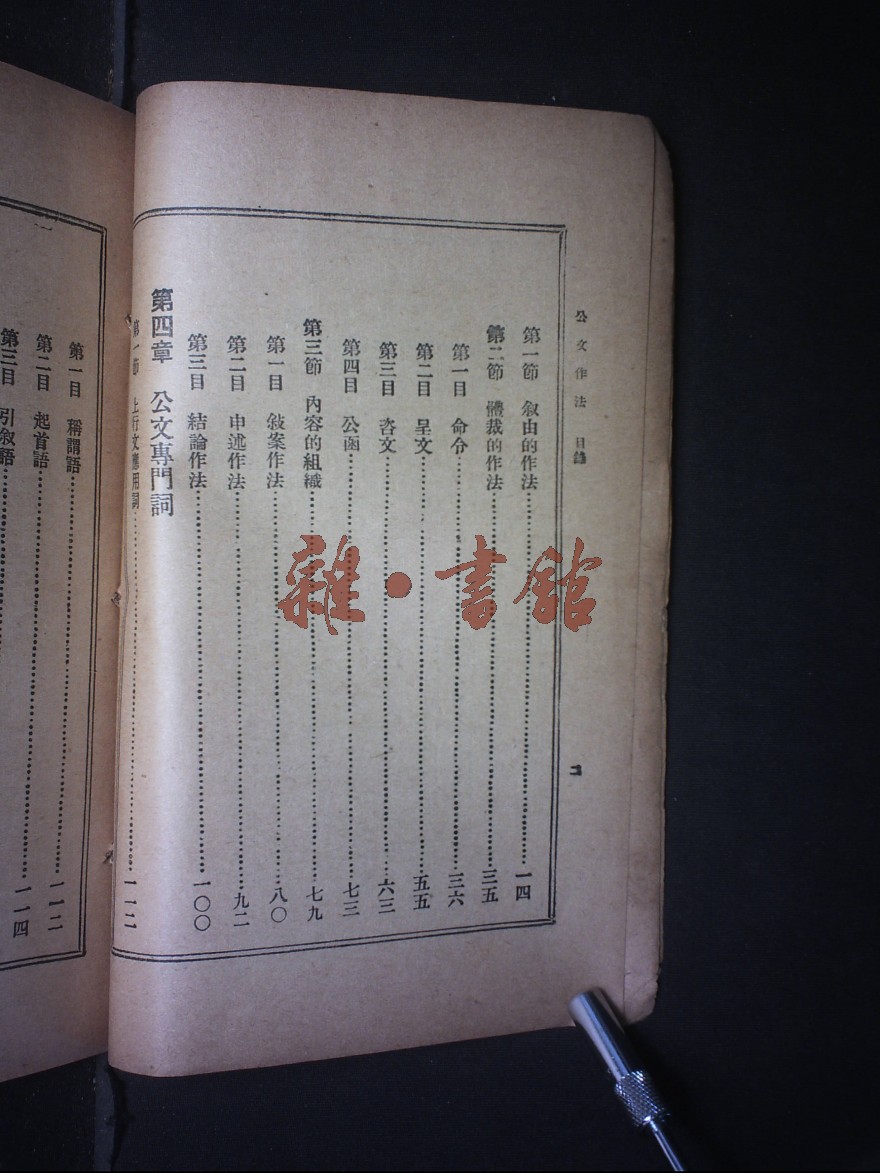 公文作法 目錄
二
第一節 敍由的作法……一四
第二節 體裁的作法……三五
第一目 命令……三六
第二目 呈文……五五
第三目 咨文……六三
第四目 公函……七三
第三節 內容的組織……七九
第一目 敍案作法……八〇
第二目 申述作法……九二
第三目 結論作法……一〇〇
第四章 公文專門詞
第一節 上行文應用詞……一一二
第一目 稱謂語……一一二
第二目 起首語
第三目 引敍語……一一四
雜·書館